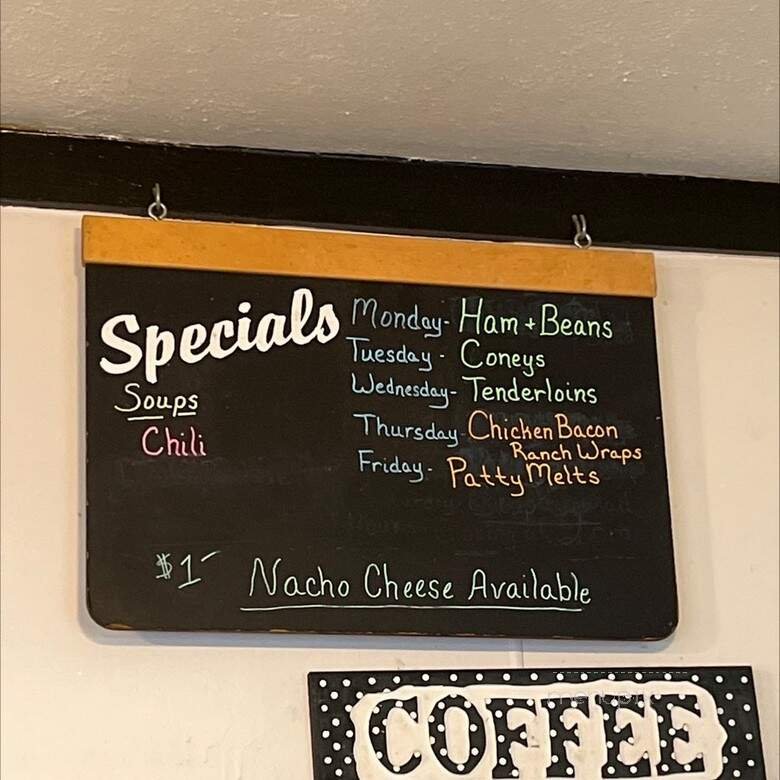 Specials
Soups
Chili
Monday- Ham + Beans
Tuesday - Coneys
Wednesday- Tenderloins
Thursday- Chicken Bacon
Ranch Wraps
Friday- Patty Melts
$1- Nacho Cheese Available
COFFEE